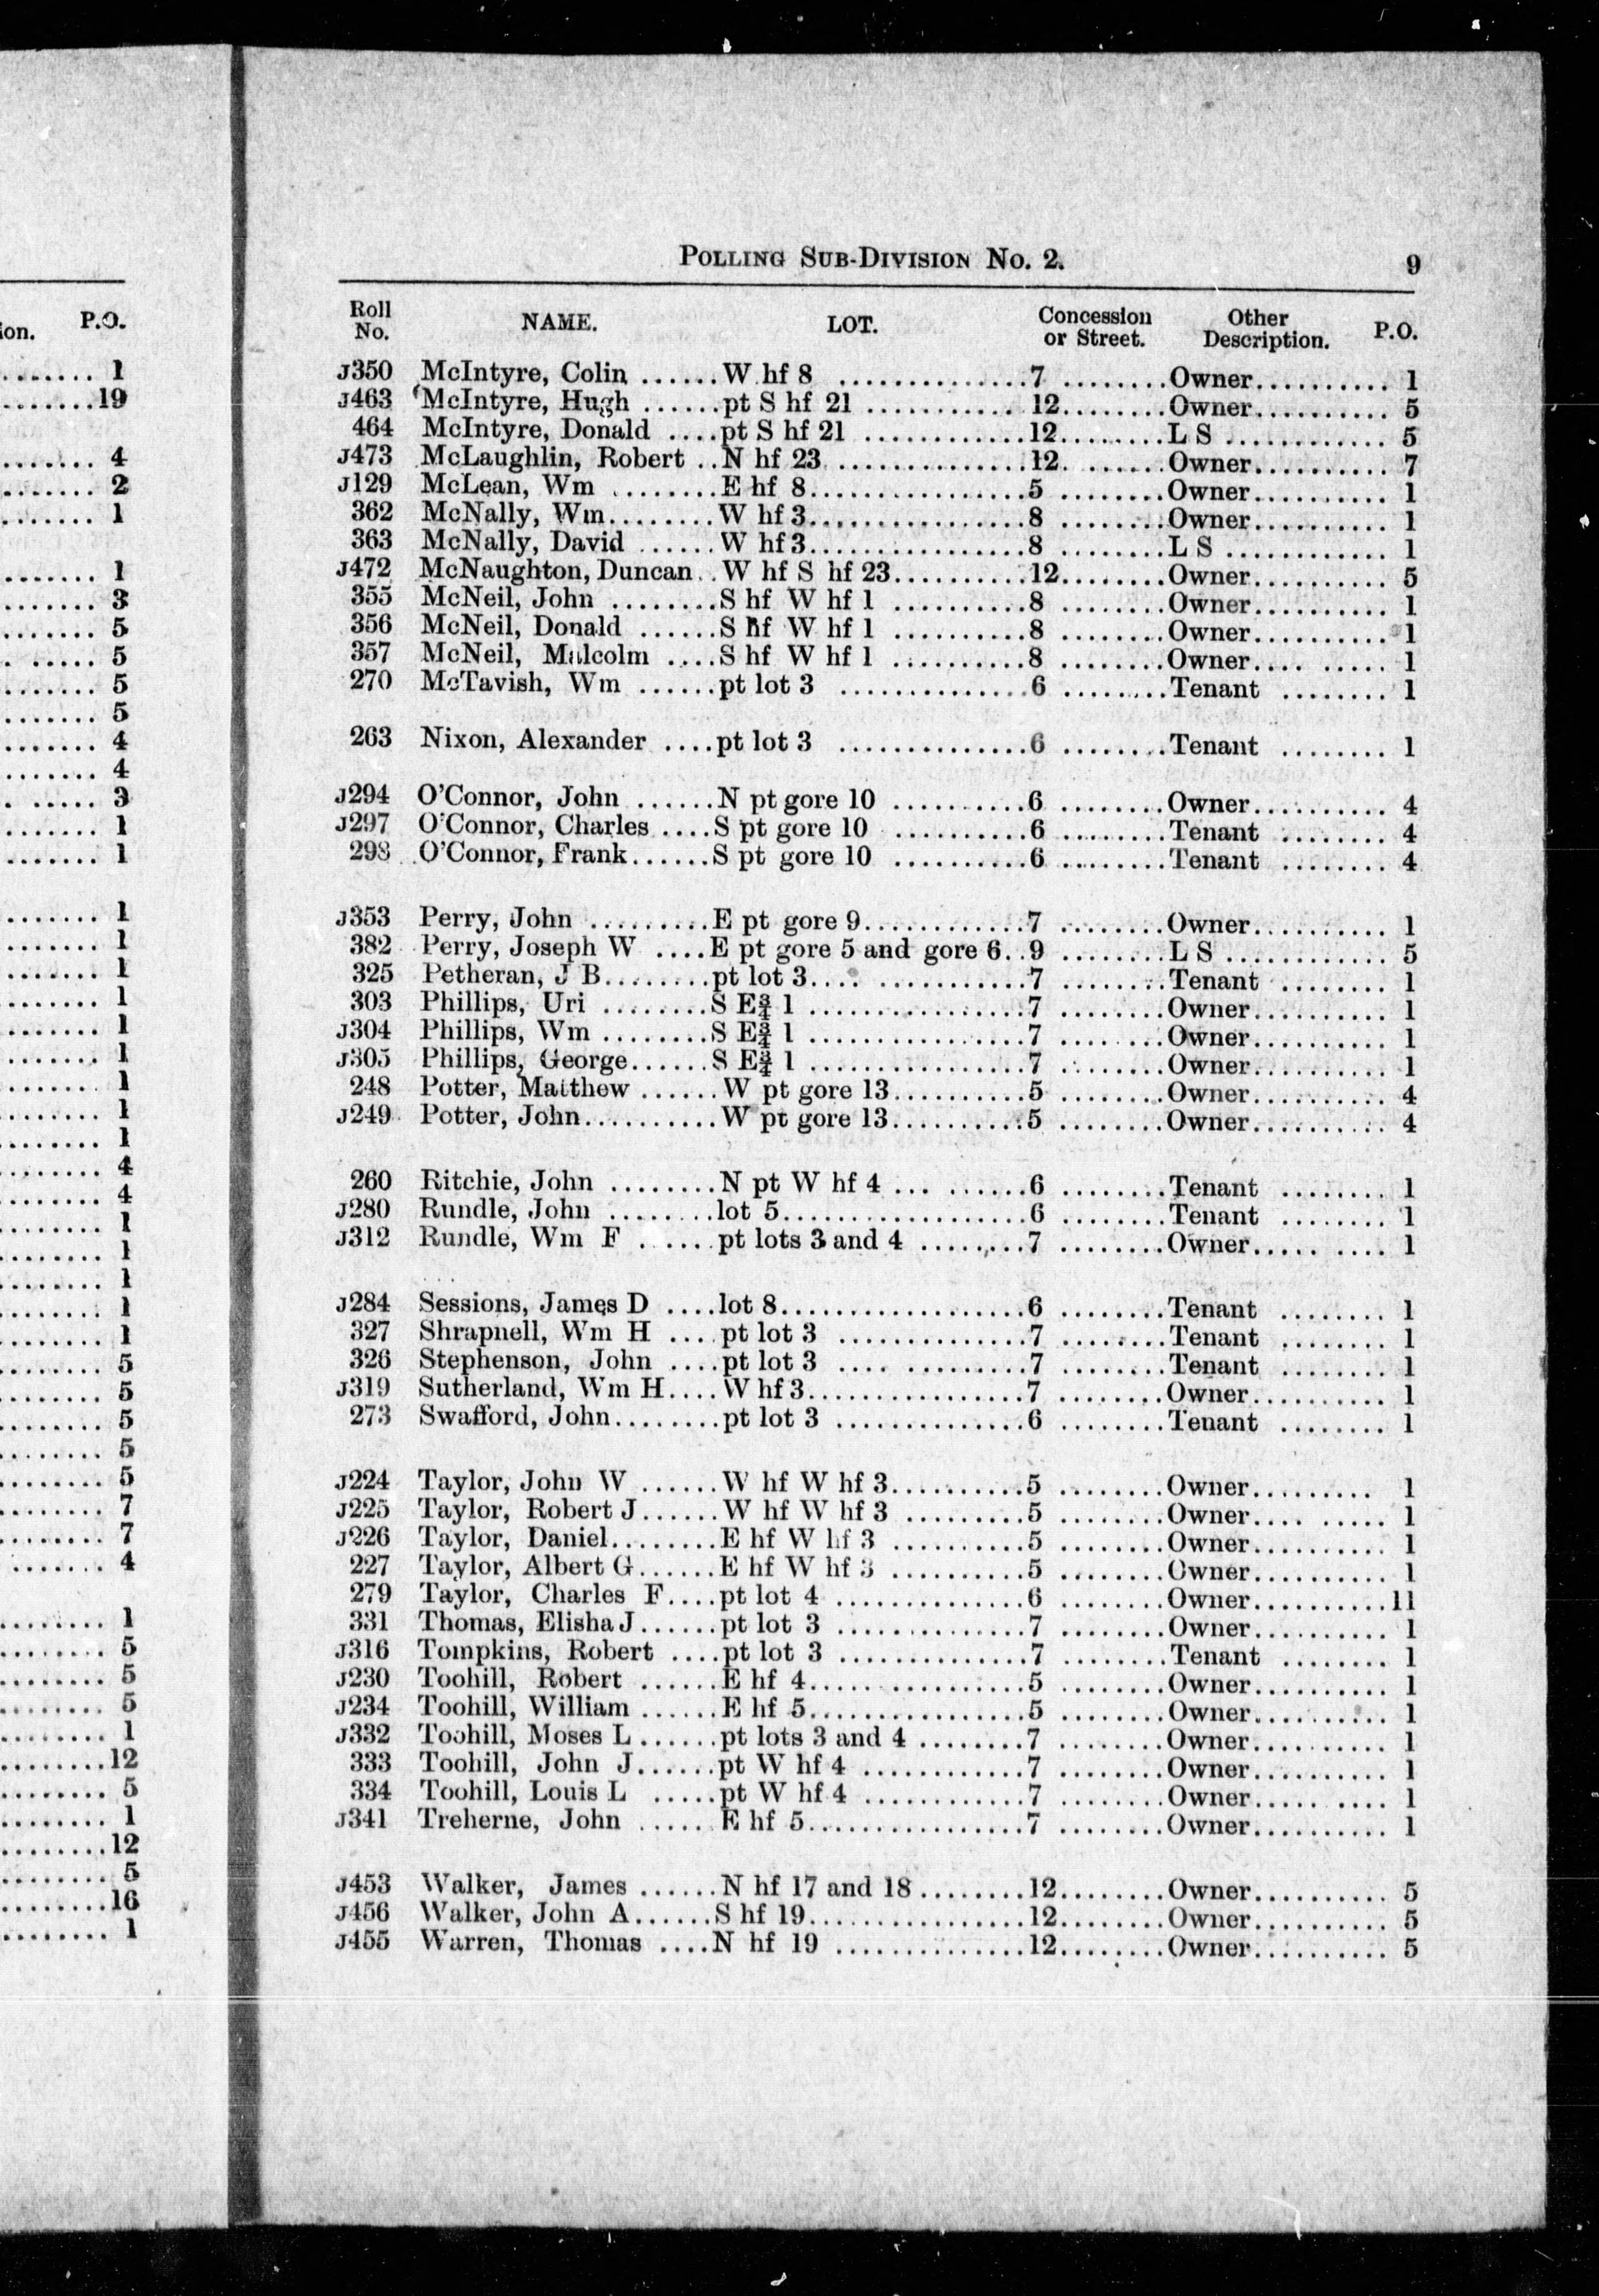 ion. P.O.
....... 1
.......19
....... 4
....... 2
....... 1
....... 1
....... 3
....... 5
. ..... 5
....... 5
....... 5
....... 4
....... 4
. ..... 3
....... 1
....... 1
....... 1
....... 1
....... 1
....... 1
....... 1
....... 1
....... 1
....... 1
....... 1
....... 4
....... 4
....... 1
....... 1
....... 1
....... 1
....... 1
....... 5
....... 5
....... 5
....... 5
....... 5
....... 7
....... 7
....... 4
....... 1
....... 5
....... 5
....... 5
....... 1
.......12
....... 5
....... 1
.......12
....... 5
.......16
....... 1
POLLING SUB-DIVISION No. 2. 9
Roll No. NAME. LOT. Concession or Street. Other Description. P.O.
J350 McIntyre, Colin ......W hf 8 ..............7 ........Owner.......... 1
J463 McIntyre, Hugh ......pt S hf 21 ........... 12........Owner.......... 5
464 McIntyre, Donald ....pt S hf 21 ............12........L S ............ 5
J473 McLaughlin, Robert ..N hf 23 ..............12. .......Owner.......... 7
J129 McLean, Wm ........E hf 8................5 ........Owner.......... 1
362 McNally, Wm........W hf 3................8 ........Owner.......... 1
363 McNally, David ......W hf 3................8 ........L S ............ 1
J472 McNaughton, Duncan..W hf S hf 23..........12........Owner.......... 5
355 McNeil, John ........S hf W hf 1 ..........8 ........Owner.......... 1
356 McNeil, Donald ......S hf W hf 1 ..........8 ........Owner.......... 1
357 McNeil, Malcolm ....S hf W hf 1 ..........8 ........Owner.... ..... 1
270 McTavish, Wm ......pt lot 3 ..............6 ........Tenant ........ 1
263 Nixon, Alexander ....pt lot 3 ..............6 ........Tenant ........ 1
J294 O'Connor, John ......N pt gore 10 ..........6 ........Owner.......... 4
J297 O'Connor, Charles ....S pt gore 10 ..........6 ........Tenant ........ 4
298 O'Connor, Frank......S pt gore 10 ..........6 ........Tenant ........ 4
J353 Perry, John .........E pt gore 9............7 ........Owner.......... 1
382 Perry, Joseph W ....E pt gore 5 and gore 6..9 ........L S ............ 5
325 Petheran, J B........pt lot 3.... ...........7 ........Tenant ........ 1
303 Phillips, Uri ........S E¾ 1 ................7 ........Owner.......... 1
J304 Phillips, Wm ........S E¾ 1 ................7 ........Owner.......... 1
J305 Phillips, George......S E¾ 1 ................7 ........Owner.......... 1
248 Potter, Matthew ......W pt gore 13..........5 ........Owner.......... 4
J249 Potter, John..........W pt gore 13..........5 ........Owner.......... 4
260 Ritchie, John ........N pt W hf 4 ... ......6 ........Tenant ........ 1
J280 Rundle, John ........lot 5..................6 ........Tenant ........ 1
J312 Rundle, Wm F ......pt lots 3 and 4 ........7 ........Owner..... .... 1
J284 Sessions, James D ....lot 8..................6 ........Tenant ........ 1
327 Shrapnell, Wm H ....pt lot 3 ..............7 ........Tenant ........ 1
326 Stephenson, John ....pt lot 3 .... .........7 ........Tenant ........ 1
J319 Sutherland, Wm H....W hf 3................7 ........Owner.......... 1
273 Swafford, John........pt lot 3 ..............6 ........Tenant ........ 1
J224 Taylor, John W ......W hf W hf 3..........5 ........Owner......... 1
J225 Taylor, Robert J......W hf W hf 3 .........5 ........Owner.... ..... 1
J226 Taylor, Daniel........E hf W hf 3 ..........5 ........Owner.......... 1
227 Taylor, Albert G......E hf W hf 3 ..........5 ........Owner.......... 1
279 Taylor, Charles F....pt lot 4 ..............6 ........Owner..........11
331 Thomas, Elisha J......pt lot 3 ..............7 ........Owner.......... 1
J316 Tompkins, Robert ....pt lot 3 ..............7 ........Tenant ........ 1
J230 Toohill, Robert ......E hf 4................5 ........Owner.......... 1
J234 Toohill, William ......E hf 5................5 ........Owner.......... 1
J332 Toohill, Moses L ......pt lots 3 and 4 ........7 ........Owner.......... 1
333 Toohill, John J......pt W hf 4 ............7 ........Owner.......... 1
334 Toohill, Louis L .....pt W hf 4 ............7 ........Owner..... .... 1
J341 Treherne, John ......E hf 5................7 ........Owner.......... 1
J453 Walker, James ......N hf 17 and 18........12........Owner.......... 5
J456 Walker, John A......S hf 19................12........Owner.......... 5
J455 Warren, Thomas ....N hf 19 ..............12........Owner.......... 5